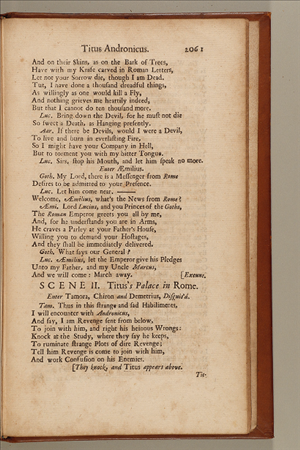 Titus Andronicus. 2061
And on their Skins, as on the Bark of Trees,
Have with my Knife carved in Roman Letters,
Let not your Sorrow die, though I am Dead.
Tut, I have done a thousand dreadful things,
As willingly as one would kill a Fly,
And nothing grieves me heartily indeed,
But that I cannot do ten thousand more.
Luc. Bring down the Devil, for he must not die
So sweet a Death, as Hanging presently.
Aar. If there be Devils, would I were a Devil,
To live and burn in everlasting Fire,
So I might have your Company in Hell,
But to torment you with my bitter Tongue.
Luc. Sirs, stop his Mouth, and let him speak no more.
Enter Æmilius.
Goth. My Lord, there is a Messenger from Rome
Desires to be admitted to your Presence.
Luc. Let him come near. ——
Welcome, Æmilius, what's the News from Rome?
Æmi. Lord Lucius, and you Princes of the Goths,
The Roman Emperor greets you all by me,
And, for he understands you are in Arms,
He craves a Parley at your Father's House,
Willing you to demand your Hostages,
And they shall be immediately delivered.
Goth. What says our General?
Luc. Æmilius, let the Emperor give his Pledges
Unto my Father, and my Uncle Marcus,
And we will come: March away. [Exeunt.
SCENE II. Titus's Palace in Rome.
Enter Tamora, Chiron and Demetrius, Disguis'd.
Tam. Thus in this strange and sad Habiliment,
I will encounter with Andronicus,
And say, I am Revenge sent from below,
To join with him, and right his heinous Wrongs:
Knock at the Study, where they say he keeps,
To ruminate strange Plots of dire Revenge;
Tell him Revenge is come to join with him,
And work Confusion on his Enemies.
[They knock, and Titus appears above.
Tit.